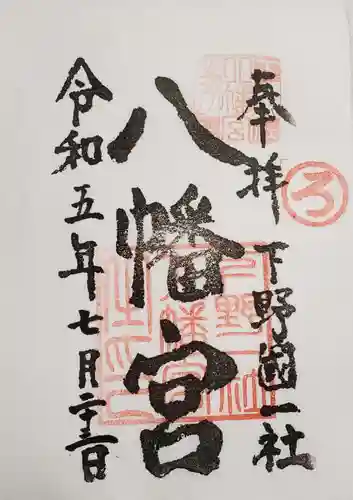 奉拝
ろ
下野國一社
八幡宮
令和五年七月二十三日